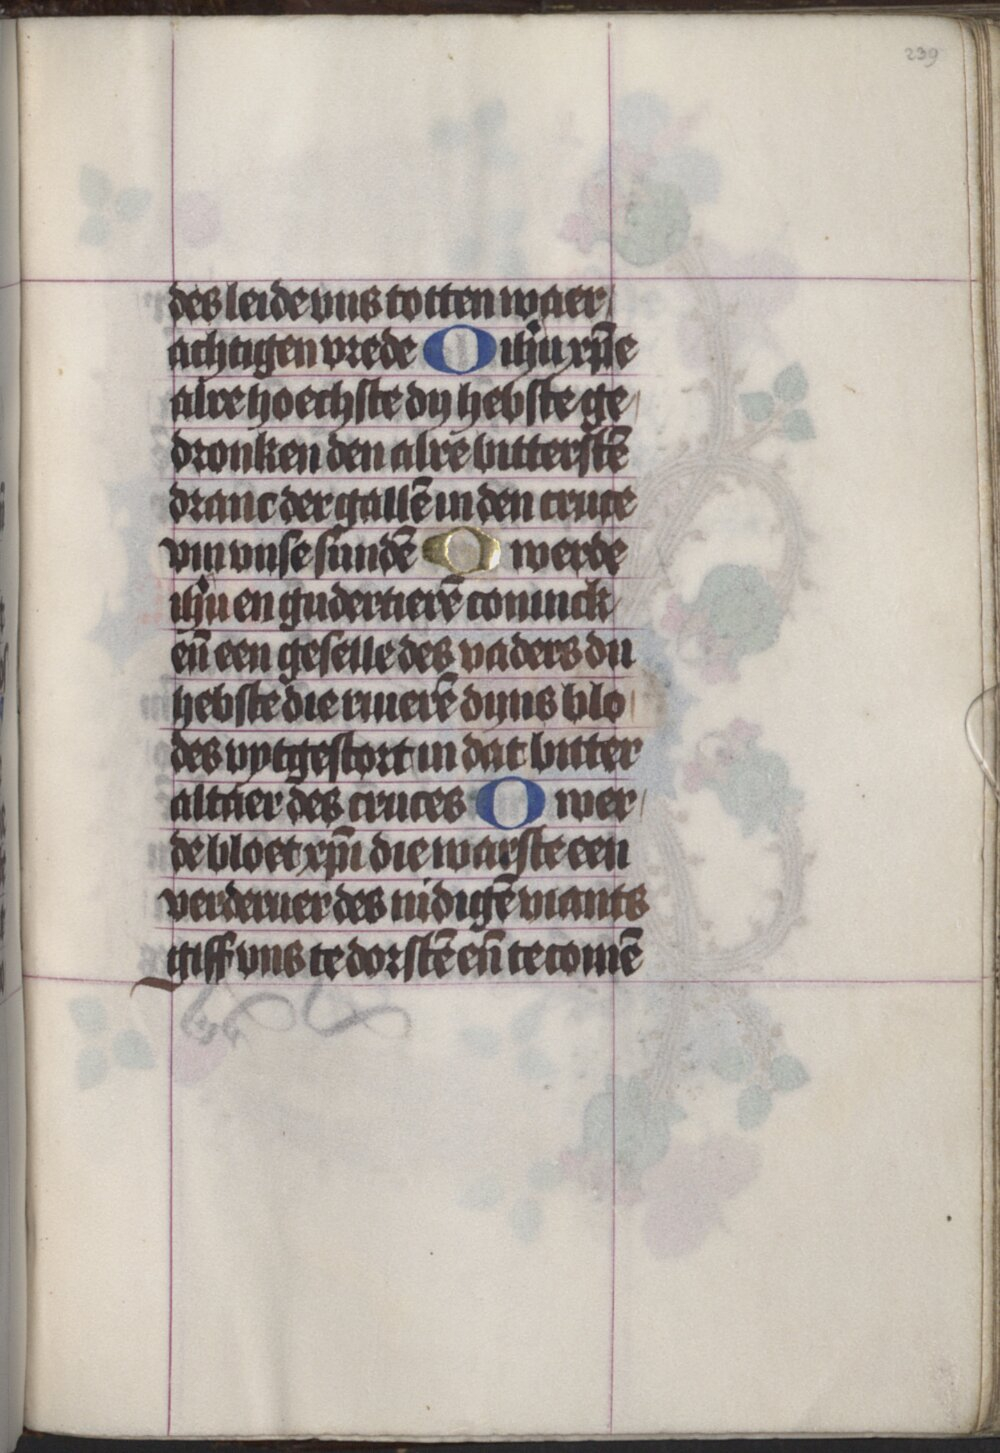 239
des leide vns totten waer/
achtigen vrede O ihū xp̄e
alre hoechste dy hebste ge/
dronken den alre bitterstē
dranc der gallē in den cruce
vm vnse sundē O werde
ihū en gudertierē coninck/
eñ een geselle des vaders du
hebste die riuerē dyns blo
des vytgestort in dat bitter
altaer des cruces O wer/
de bloet xp̄i die warste een
verderuer des nidigē viants
giff vns te dorstē eñ te comē